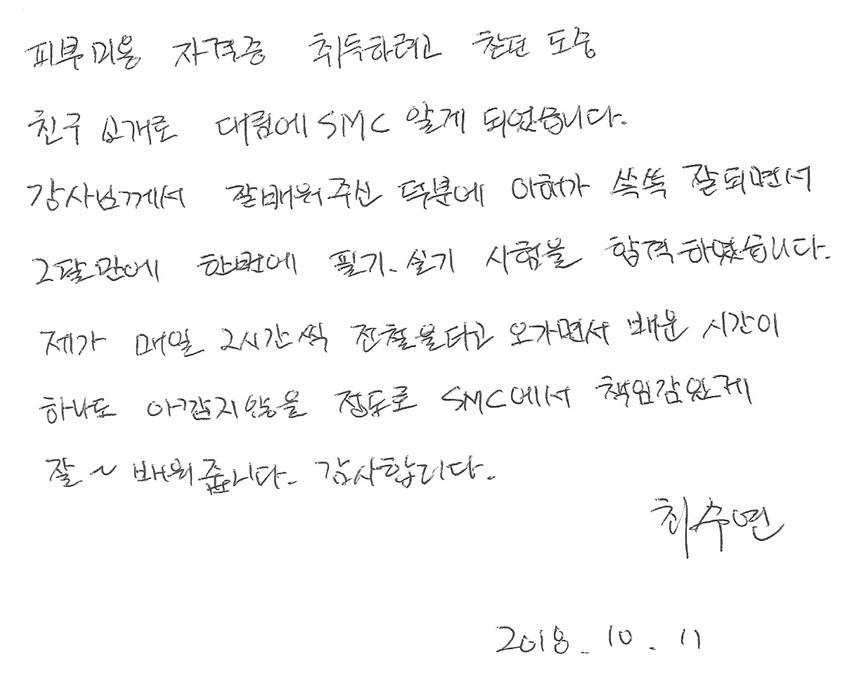 피부미용 자격증 취득하려고 찾던 도중
친구 소개로 대림에 SMC 알게 되었습니다.
강사님께서 잘배워주신 덕분에 이해가 쏙쏙 잘되면서
2달만에 한번에 필기.실기 시험을 합격하였습니다.
제가 매일 2시간씩 전철을타고 오가면서 배운 시간이
하나도 아깝지않을 정도로 SMC에서 책임감있게
잘~ 배워줍니다. 감사합니다.
최수연
2018. 10. 11